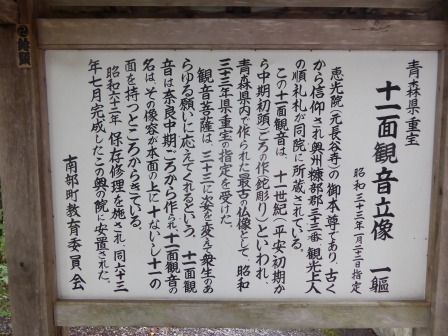 青森県重宝
十一面観音立像 一軀
昭和三十三年一月二十二日指定
恵光院(元長谷寺)の御本尊であり、古く
から信仰され奥州糠部郡三十三番 観光上人
の順礼札が同院に所蔵されている。
この十一面観音は、十一世紀(平安初期か
ら中期初頭)ごろの作(鉈彫り)といわれ、
青森県内で作られた最古の仏像として、昭和
三十三年県重宝の指定を受けた。
観音菩薩は、三十三に姿を変えて衆生のあ
らゆる願いに応えてくれるという。十一面観
音は奈良中期ごろから作られ、十一面観音の
名は、その像容が本面の上に十ないし十一の
面を持つところからきている。
昭和六十二年 保存修理を施され、同六十三
年七月完成したこの奥の院に安置された。
南部町教育委員会